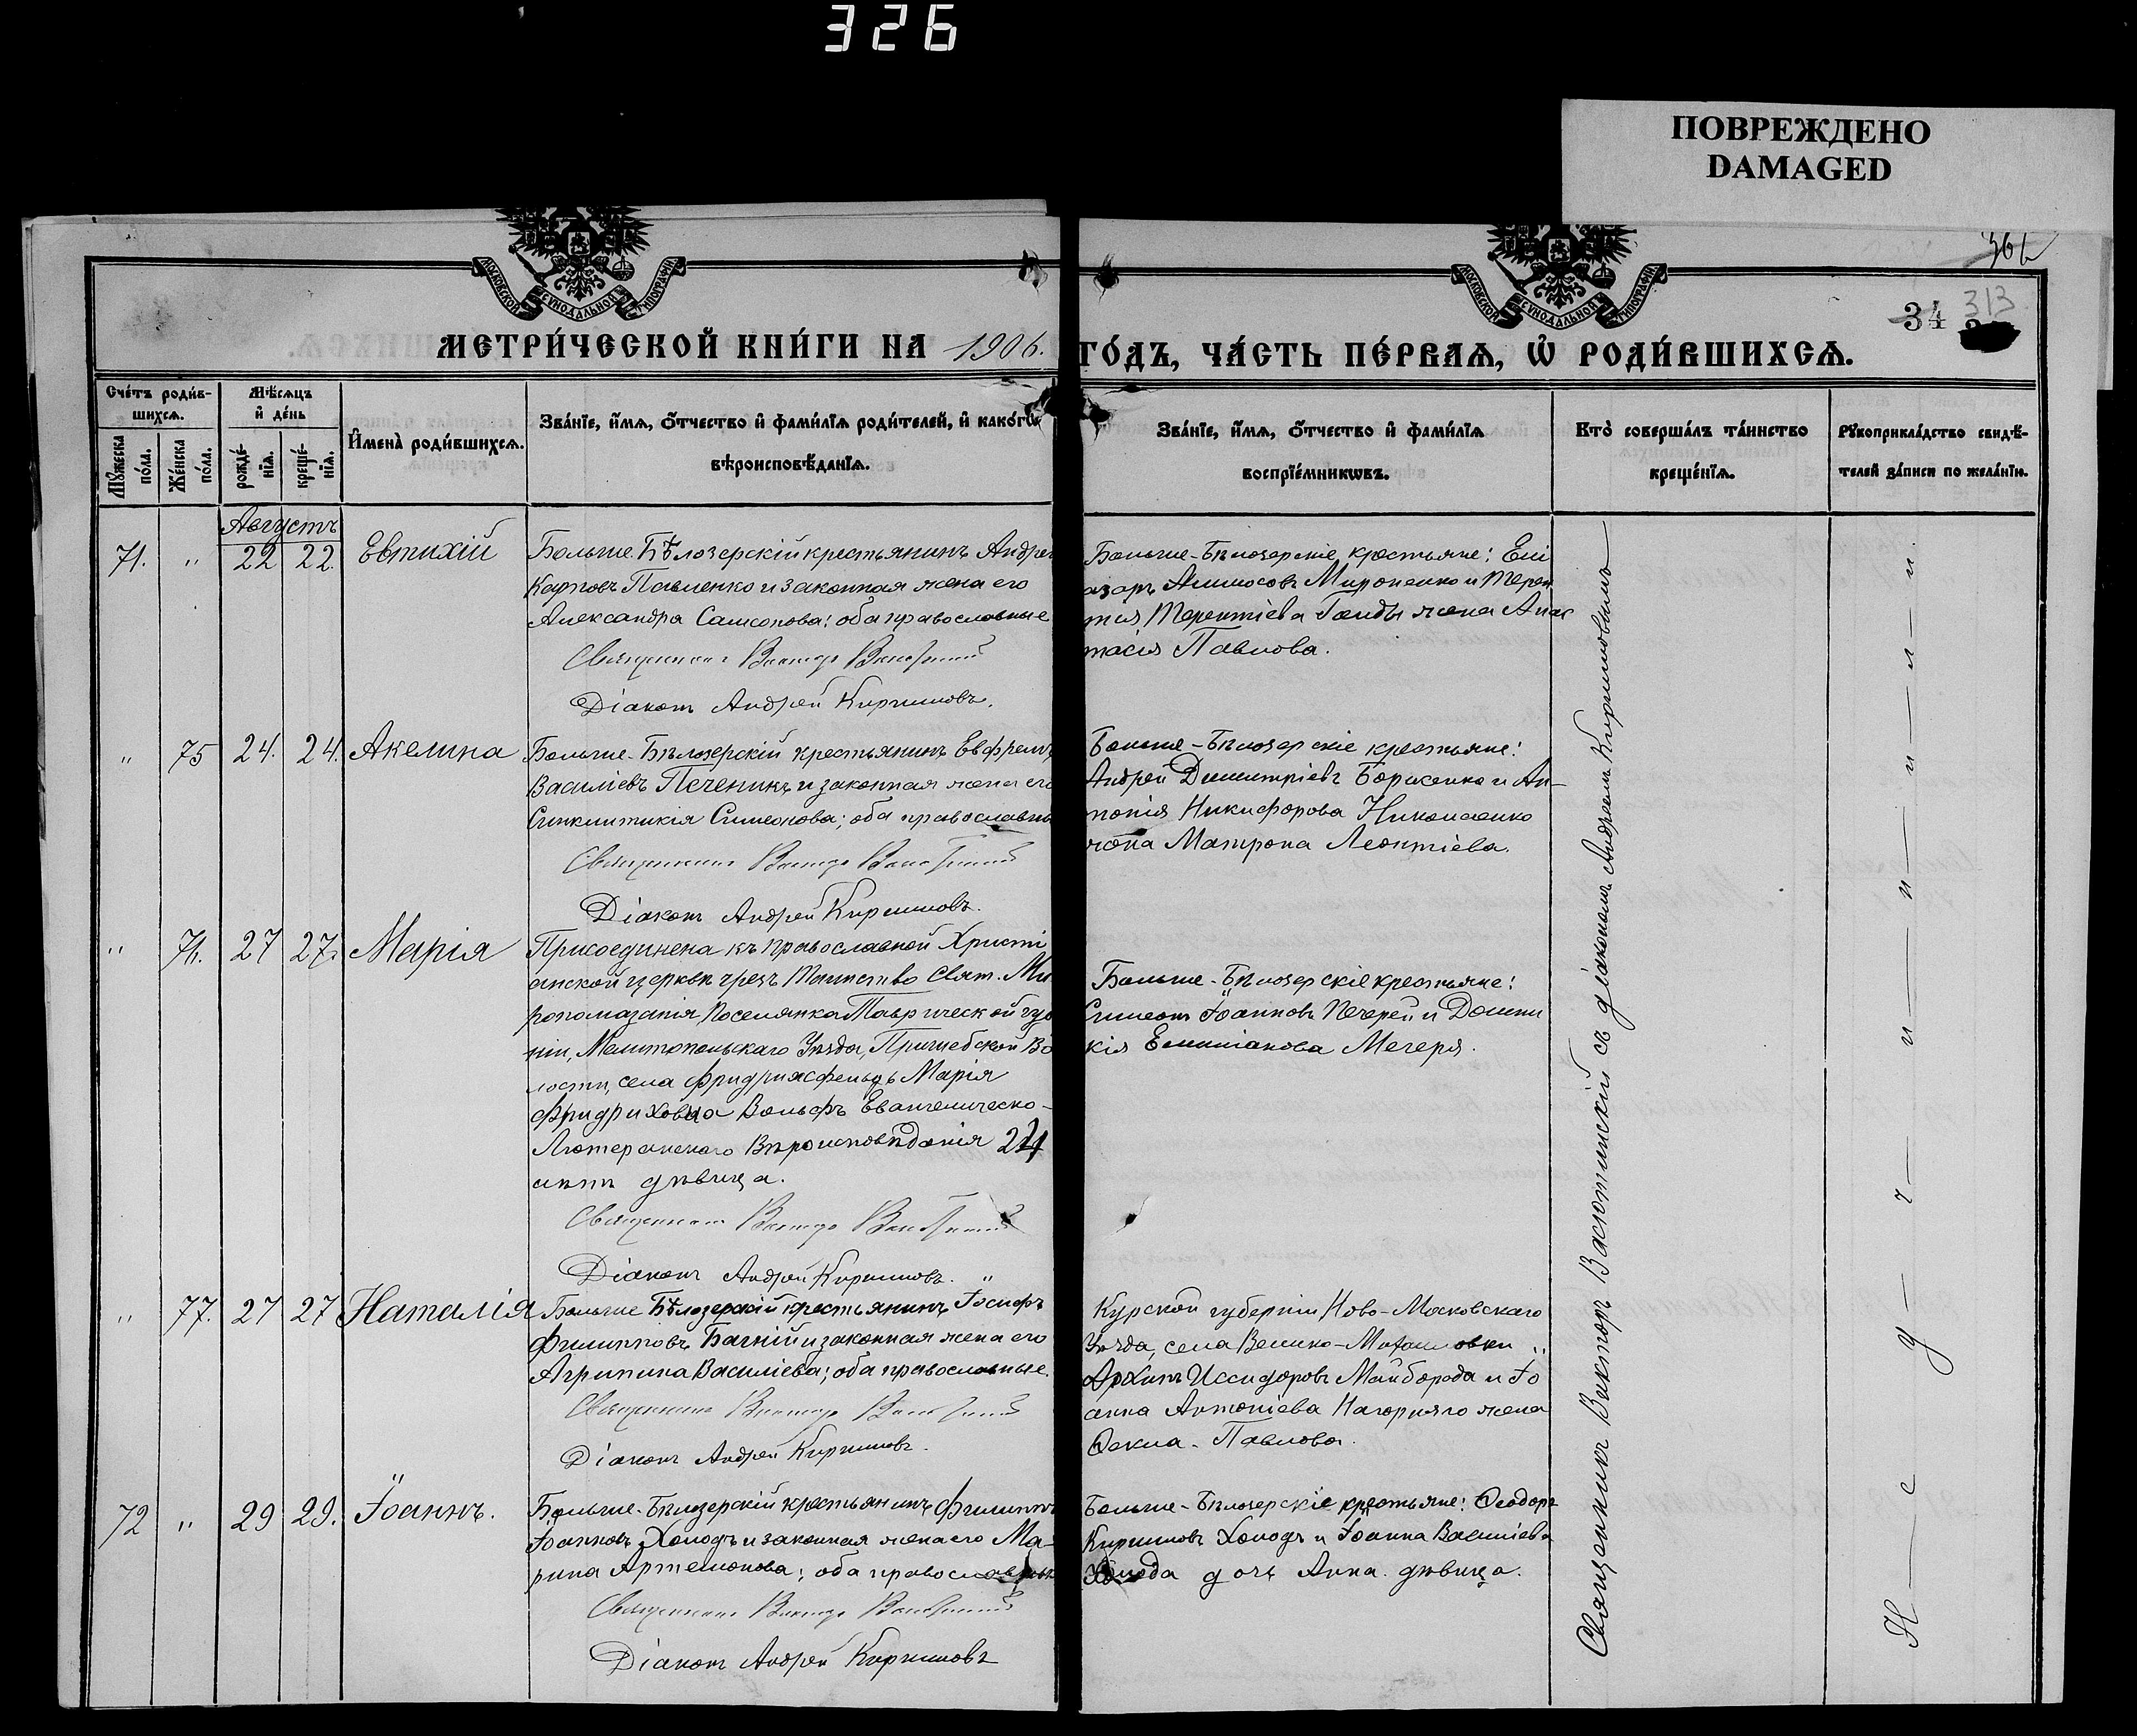 326
ПОВРЕЖДЕНО
DAMAGED
МОСКОВСКОЙ СѴНОДАЛЬНОЙ ТИПОГРАФІИ
МОСКОВСКОЙ СѴНОДАЛЬНОЙ ТИПОГРАФІИ
34 313
МЕТРИ́ЧЕСКОЙ КНИ́ГИ НА 1906. ГО́ДЪ, ЧА́СТЬ ПЕ́РВАѦ, Ѡ҆ РОДИ́ВШИХСѦ.
Сче́тъ роди́в-
шихсѧ.
Мѣ́сѧцъ
и҆ де́нь
Мꙋ́жеска по́ла.
Же́нска по́ла.
рожде́-нїѧ.
креще́-нїѧ.
И҆мена̀ роди́вшихсѧ.
Зва́нїе, и҆́мѧ, ѻ҆́тчество и҆ фамиі́лїѧ роди́телей, и҆ како́гѡ
вѣроисповѣ́данїѧ.
Зва́нїе, и҆́мѧ, ѻ҆́тчество и҆ фами́лїѧ
воспрїе́мникѡвъ.
Кто̀ соверша́лъ та́инство
креще́нїѧ.
Рꙋкоприкла́дство свидѣ́-
телей за́писи по жела́нїю.
Августъ
71. " 22 22. Евтихій
Больше Бѣлозерскій крестьянинъ Андрей
Карповъ Павленко и законная жена его
Александра Самсонова; оба православные
Священникъ Викторъ Васютинскій
Діаконъ Андрей Кирилловъ.
Больше-Бѣлозерскіе крестьяне: Елі
азаръ Мироненко и Терен
тія Терентіева Ганды жена Анас
тасія Павлова.
" 75 24. 24. Акелина
Больше-Бѣлозерскій крестьянинъ Евфремъ
Василіевъ Печенинъ и законная жена его
Синклитикія Симеонова; оба православны
Священникъ Викторъ Васютинскій
Діаконъ Андрей Кирилловъ.
Больше-Бѣлозерскіе крестьяне:
Андрей Димитріевъ Борисенко и Ан-
тонія Никифорова Николаенко
жена Матрона Леонтіева.
" 76. 27 27. Марія
Присоединена къ православной Христі
анской церкви чрезъ Таинство Свят. Ми
ропомазанія, Поселянка Таврической губ
ніи, Мелитопольскаго Уѣзда, Пришебской Во
лости, села Фридрихсфельдъ Марія
Фридриховна Вольфъ Евангелическо-
Лютеранскаго Вѣроисповѣданія
лѣтъ дѣвица.
Священникъ Викторъ Васютинскій
Діаконъ Андрей Кирилловъ.
Больше-Бѣлозерскіе крестьяне:
Симеонъ Іоанновъ Печерей и Домни
кія Емиліанова Мечеря.
" 77. 27 27 Наталія
Больше Бѣлозерскій крестьянинъ Іосифъ
Филипповъ Багній и законная жена его
Агрипина Василіева; оба православные.
Священникъ Викторъ Васютинскій
Діаконъ Андрей Кирилловъ.
Курской губерніи Ново-Московскаго
Уѣзда, села Велико-Михайловки
Архипъ Исидоровъ Майборода и Іо
анна Антоніева Нагорняго жена
Ѳекла Павлова.
72 " 29 29. Іоаннъ.
Больше-Бѣлозерскій крестьянинъ Филиппъ
Іоанновъ Холодъ и законная жена его Ма-
рина Артемонова; оба православные
Священникъ Викторъ Васютинскій
Діаконъ Андрей Кирилловъ
Больше-Бѣлозерскіе крестьяне: Ѳеодоръ
Кирилловъ Холодъ и Іоанна Василіева
Холода дочь Анна дѣвица.
Священникъ Викторъ Васютинскій съ діакономъ Андреемъ Кирилловымъ
Н—е—у—ч—и—н—и—л—и.